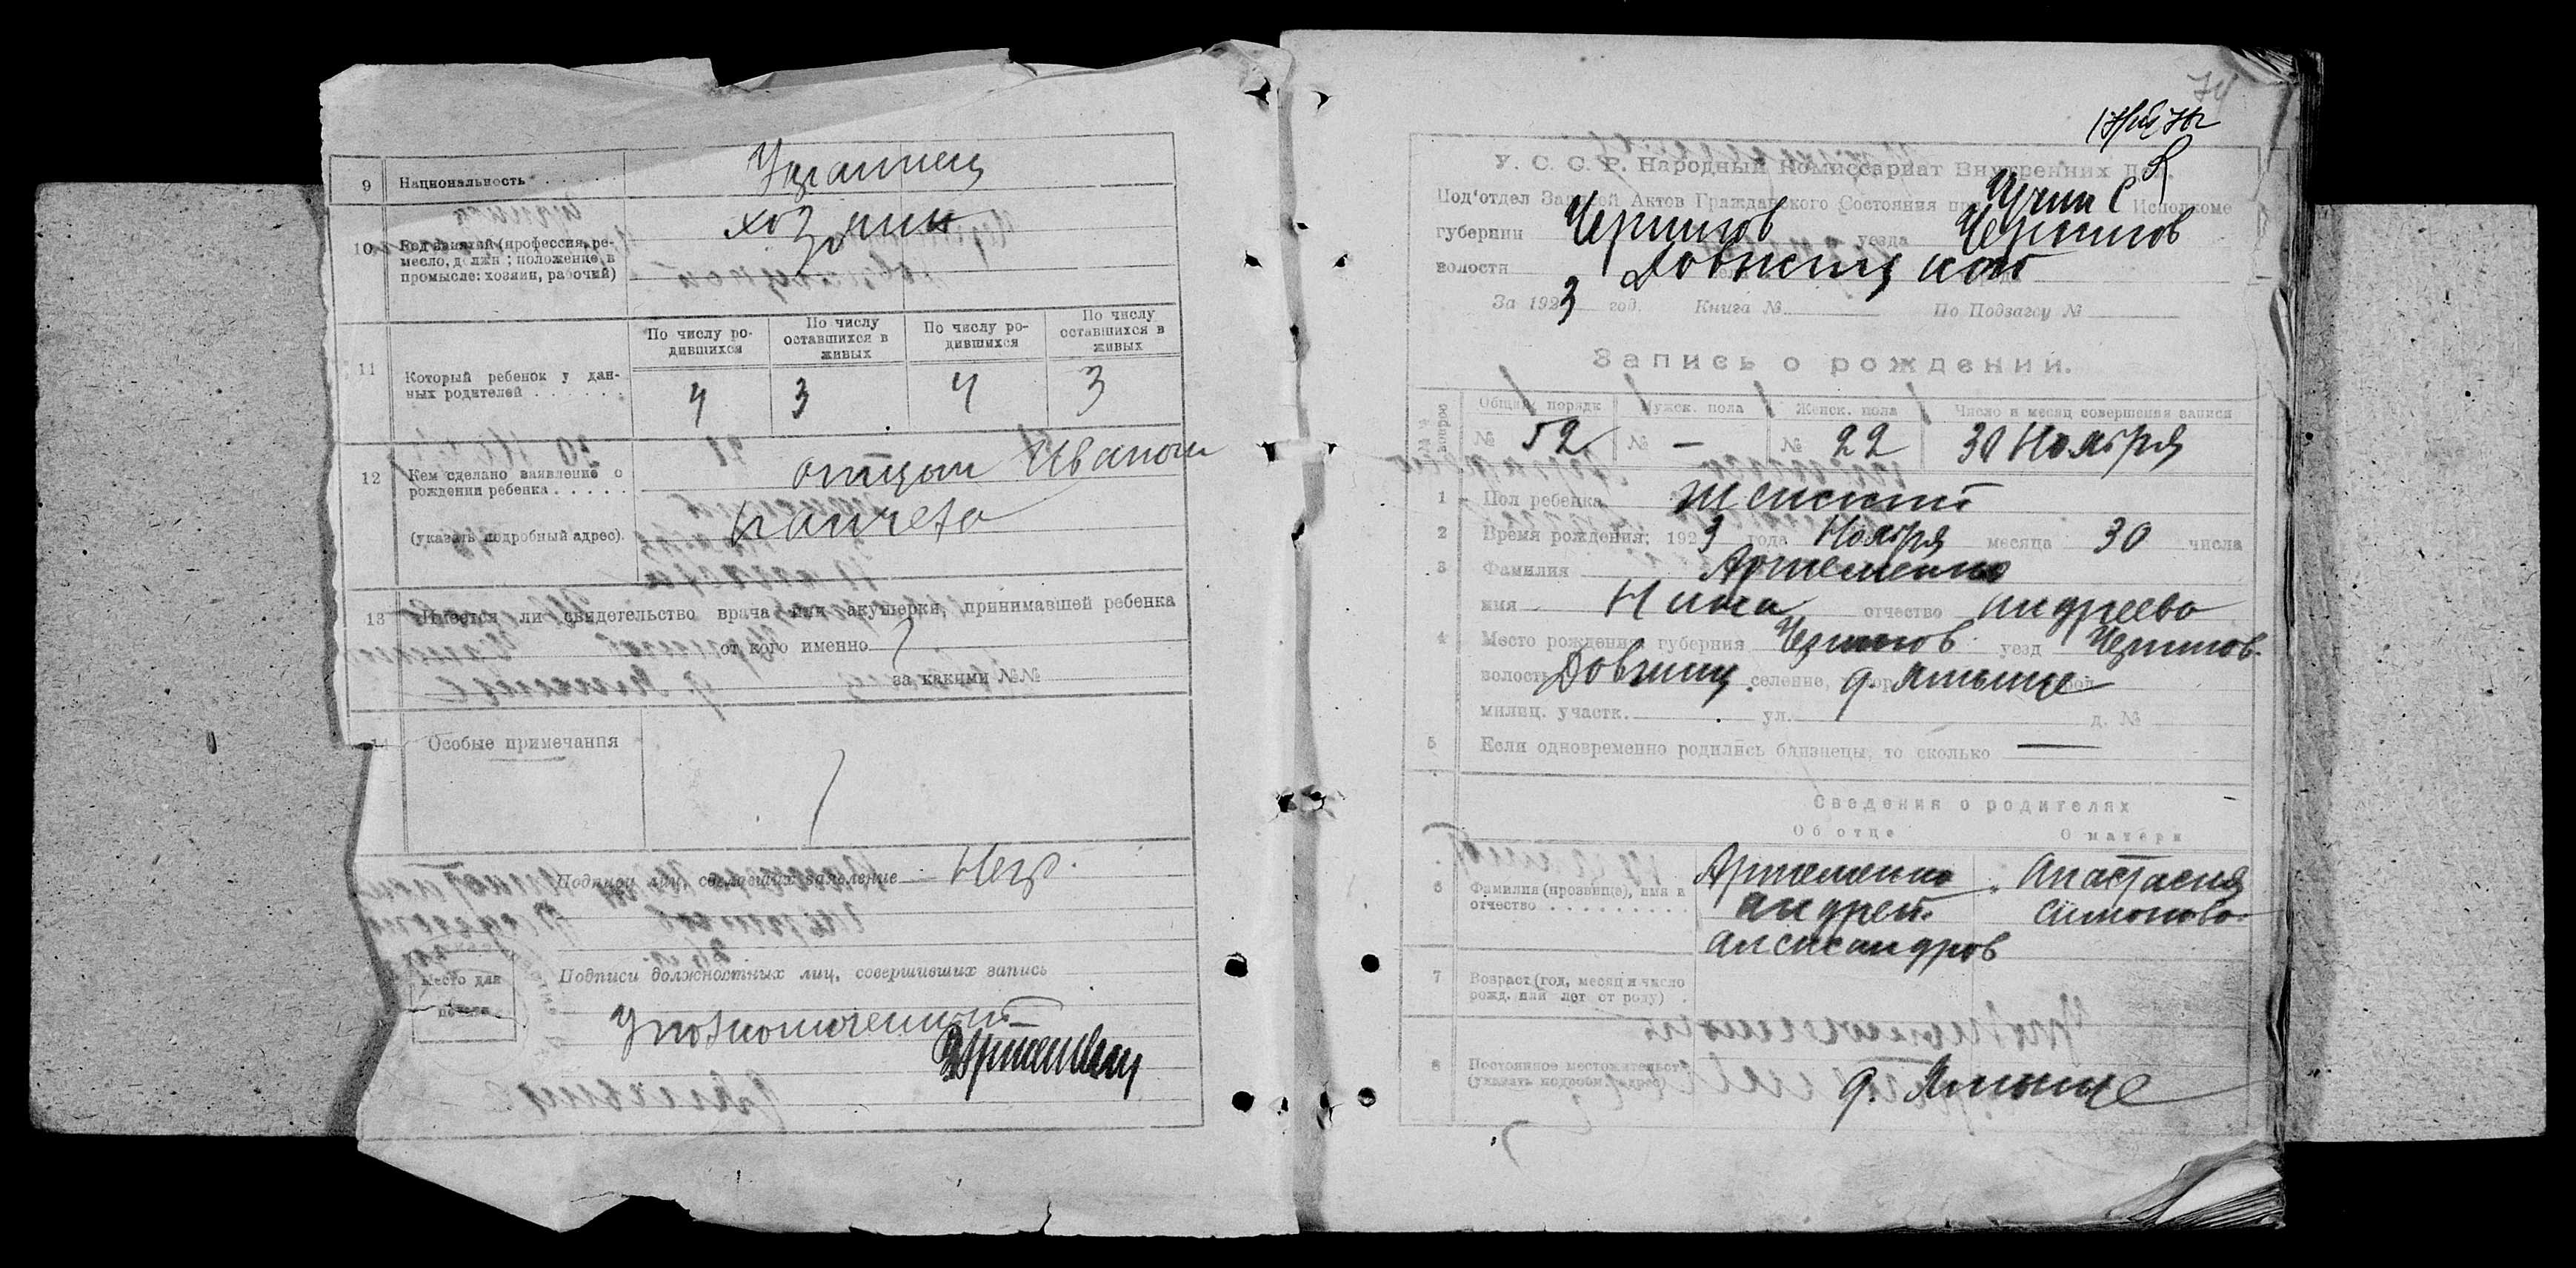 9 Национальность Украинец
10 Род занятий (профессия, ре-
месло, должн.; положение в
промысле: хозяин, рабочий)
хозяин
11 Который ребенок у дан-
ных родителей
По числу ро-
дившихся
По числу
оставшихся в
живых
По числу ро-
дившихся
По числу
оставшихся в
живых
4 3 4 3
12 Кем сделано заявление о
рождении ребенка
(указать подробный адрес).
отцом Иваном
13 Имеется ли свидетельство врача или акушерки, принимавшей ребенка
от кого именно
за какими №№
14 Особые примечания
Подписи лиц, сделавших заявление Негр.
Место для
печати
Подписи должностных лиц, совершивших запись
Уполномоченный
У. С. С. Р. Народный Комиссариат Внутренних Дел.
Под'отдел Записей Актов Гражданского Состояния при Исполкоме
губернии Чернигов уезда Чернигов
волости Довжицкого
За 1923 год. Книга № По Подзагсу №
Запись о рождении.
№№ вопроса
Общий порядк Мужск. пола Женск. пола Число и месяц совершения записи
№ 52 № — № 22 30 Ноября
1 Пол ребенка Женский
2 Время рождения: 1923 года Ноября месяца 30 числа
3 Фамилия Артеменко
имя Нина отчество Андреева
4 Место рождения: губерния Чернигов уезд Чернигов.
волость Довжиц. селение, д. Ямыще
милиц. участк. ул. д. №
5 Если одновременно родились близнецы, то сколько —
Сведения о родителях
Об отце О матери
6 Фамилия (прозвище), имя и
отчество
Артеменко
Андрей
Александров
Анастасия
Симонова
7 Возраст (год, месяц и число
рожд. или лет от роду)
8 Постоянное местожительст.
(указать подробн. адрес)
д. Ямыще